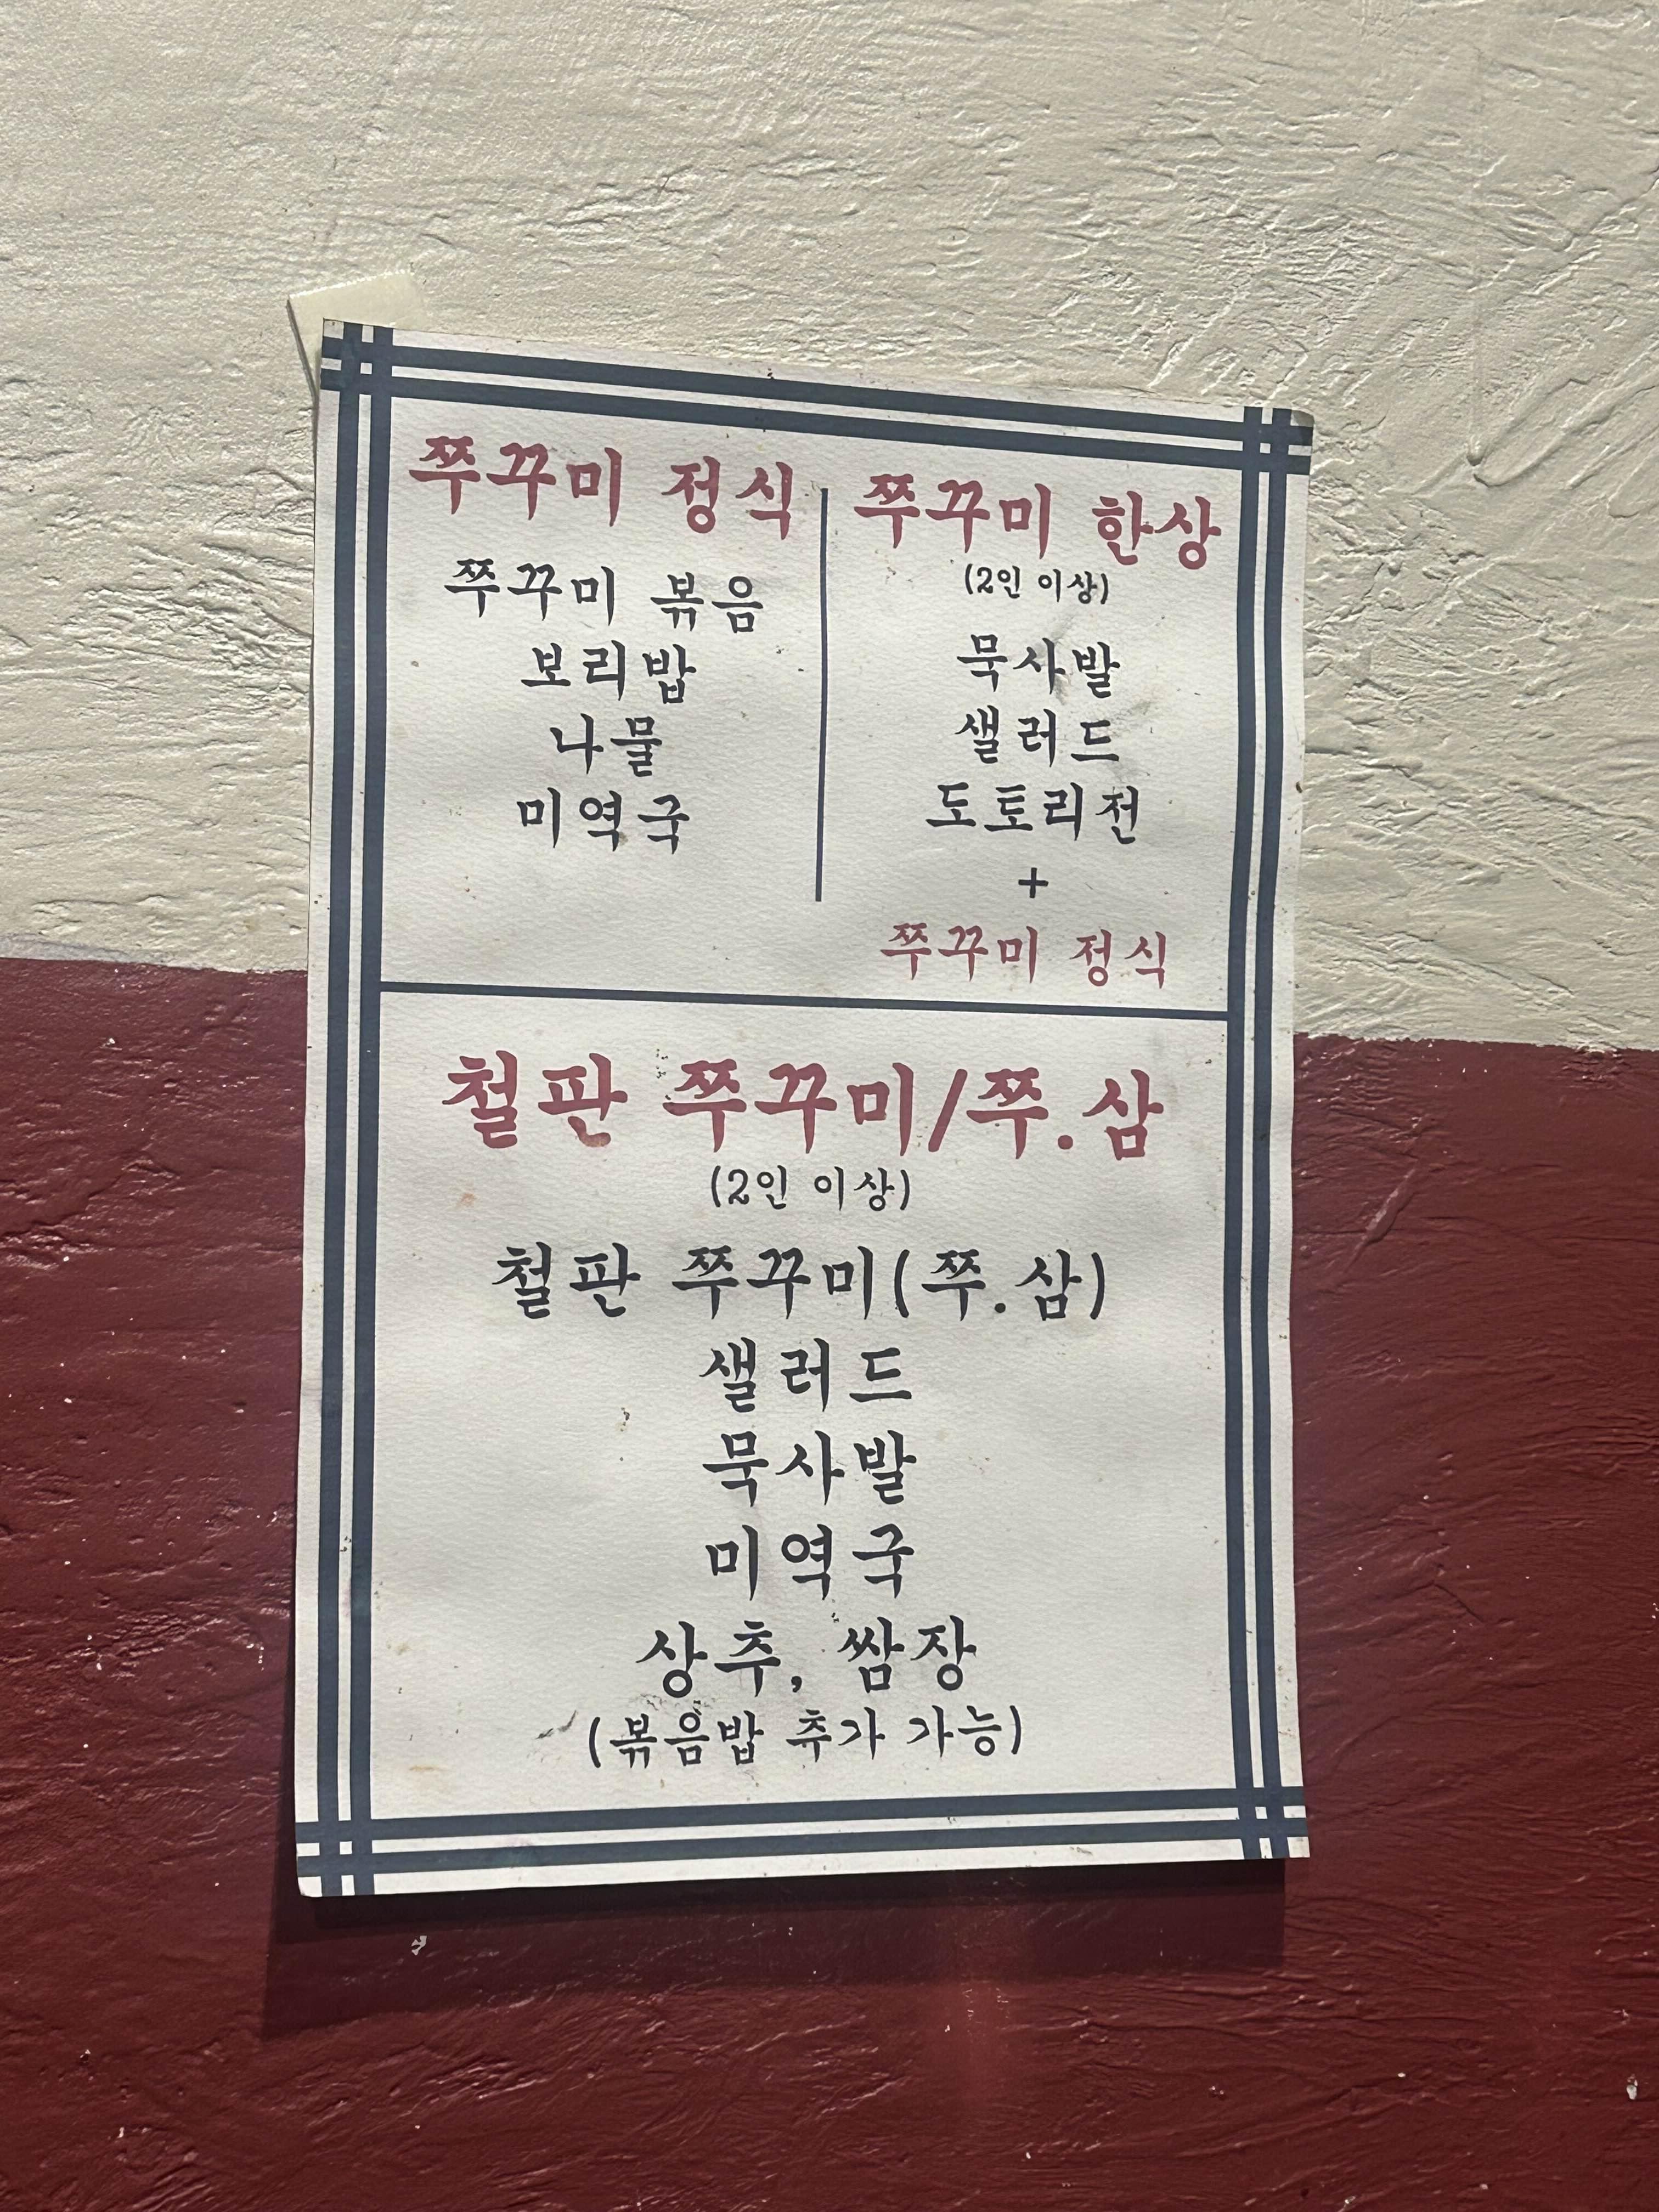 쭈꾸미 정식
쭈꾸미 볶음
보리밥
나물
미역국
쭈꾸미 한상
(2인 이상)
묵사발
샐러드
도토리전
+
쭈꾸미 정식
철판 쭈꾸미/쭈.삼
(2인 이상)
철판 쭈꾸미(쭈.삼)
샐러드
묵사발
미역국
상추, 쌈장
(볶음밥 추가 가능)